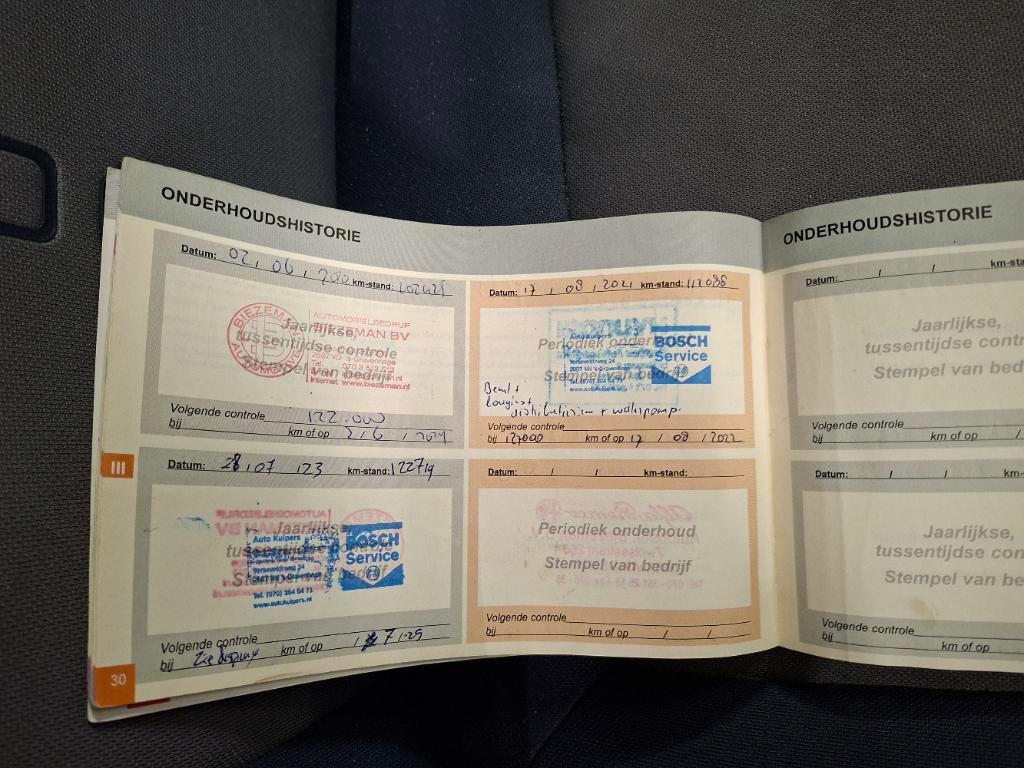 ONDERHOUDSHISTORIE
Datum: 02, 06, km-stand:
BIEZEMAN
AUTOMOBIELBEDRIJF
BIEZEMAN BV
Jaarlijkse,
tussentijdse controle
Stempel van bedrijf
2587 VD 's-Gravenhage
Tel.
Internet www.biezeman.nl
Volgende controle 122.000
bij km of op 2, 6,
Datum: 17, 08, 2021 km-stand: 112086
Auto Kuipers
BOSCH
Service
Periodiek onderhoud
Stempel van bedrijf
Verseveldweg 24
www.autokuipers.nl
distributieriem + waterpomp.
Volgende controle
bij 127000 km of op 17, 08, 2022
Datum: 28, 07, 23 km-stand: 122719
Jaarlijkse,
tussentijdse controle
Stempel van bedrijf
Auto Kuipers
BOSCH
Service
Tel. (070) 354 54 71
www.autokuipers.nl
Volgende controle
bij Zie display km of op
Datum: / / km-stand:
Periodiek onderhoud
Stempel van bedrijf
Volgende controle
bij km of op / /
III
30
ONDERHOUDSHISTORIE
Datum: / / km-sta
Jaarlijkse,
tussentijdse contr
Stempel van bed
Volgende controle
bij km of op /
Datum: / / km-
Jaarlijkse,
tussentijdse con
Stempel van be
Volgende controle
bij km of op